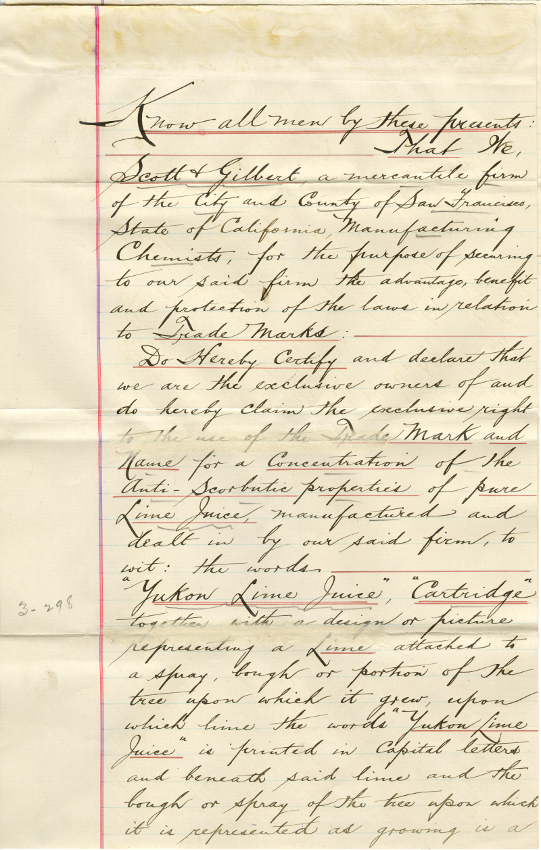 Know all men by these presents:
That We,
Scott & Gilbert, a mercantile firm
of the City and County of San Francisco,
State of California, Manufacturing
Chemists, for the purpose of securing
to our said firm the advantage, benefit
and protection of the laws in relation
to Trade Marks:
Do Hereby Certify and declare that
we are the exclusive owners of and
do hereby claim the exclusive right
to the use of the Trade Mark and
Name for a Concentration of the
Anti-Scorbutic properties of pure
Lime Juice, manufactured and
dealt in by our said firm, to
wit: the words
"Yukon Lime Juice", "Cartridge"
together with a design or picture
representing a Lime attached to
a spray, bough or portion of the
tree upon which it grew, upon
which lime the words "Yukon Lime
Juice" is printed in Capital letters
and beneath said lime and the
bough or spray of the tree upon which
it is represented as growing is a
3-298